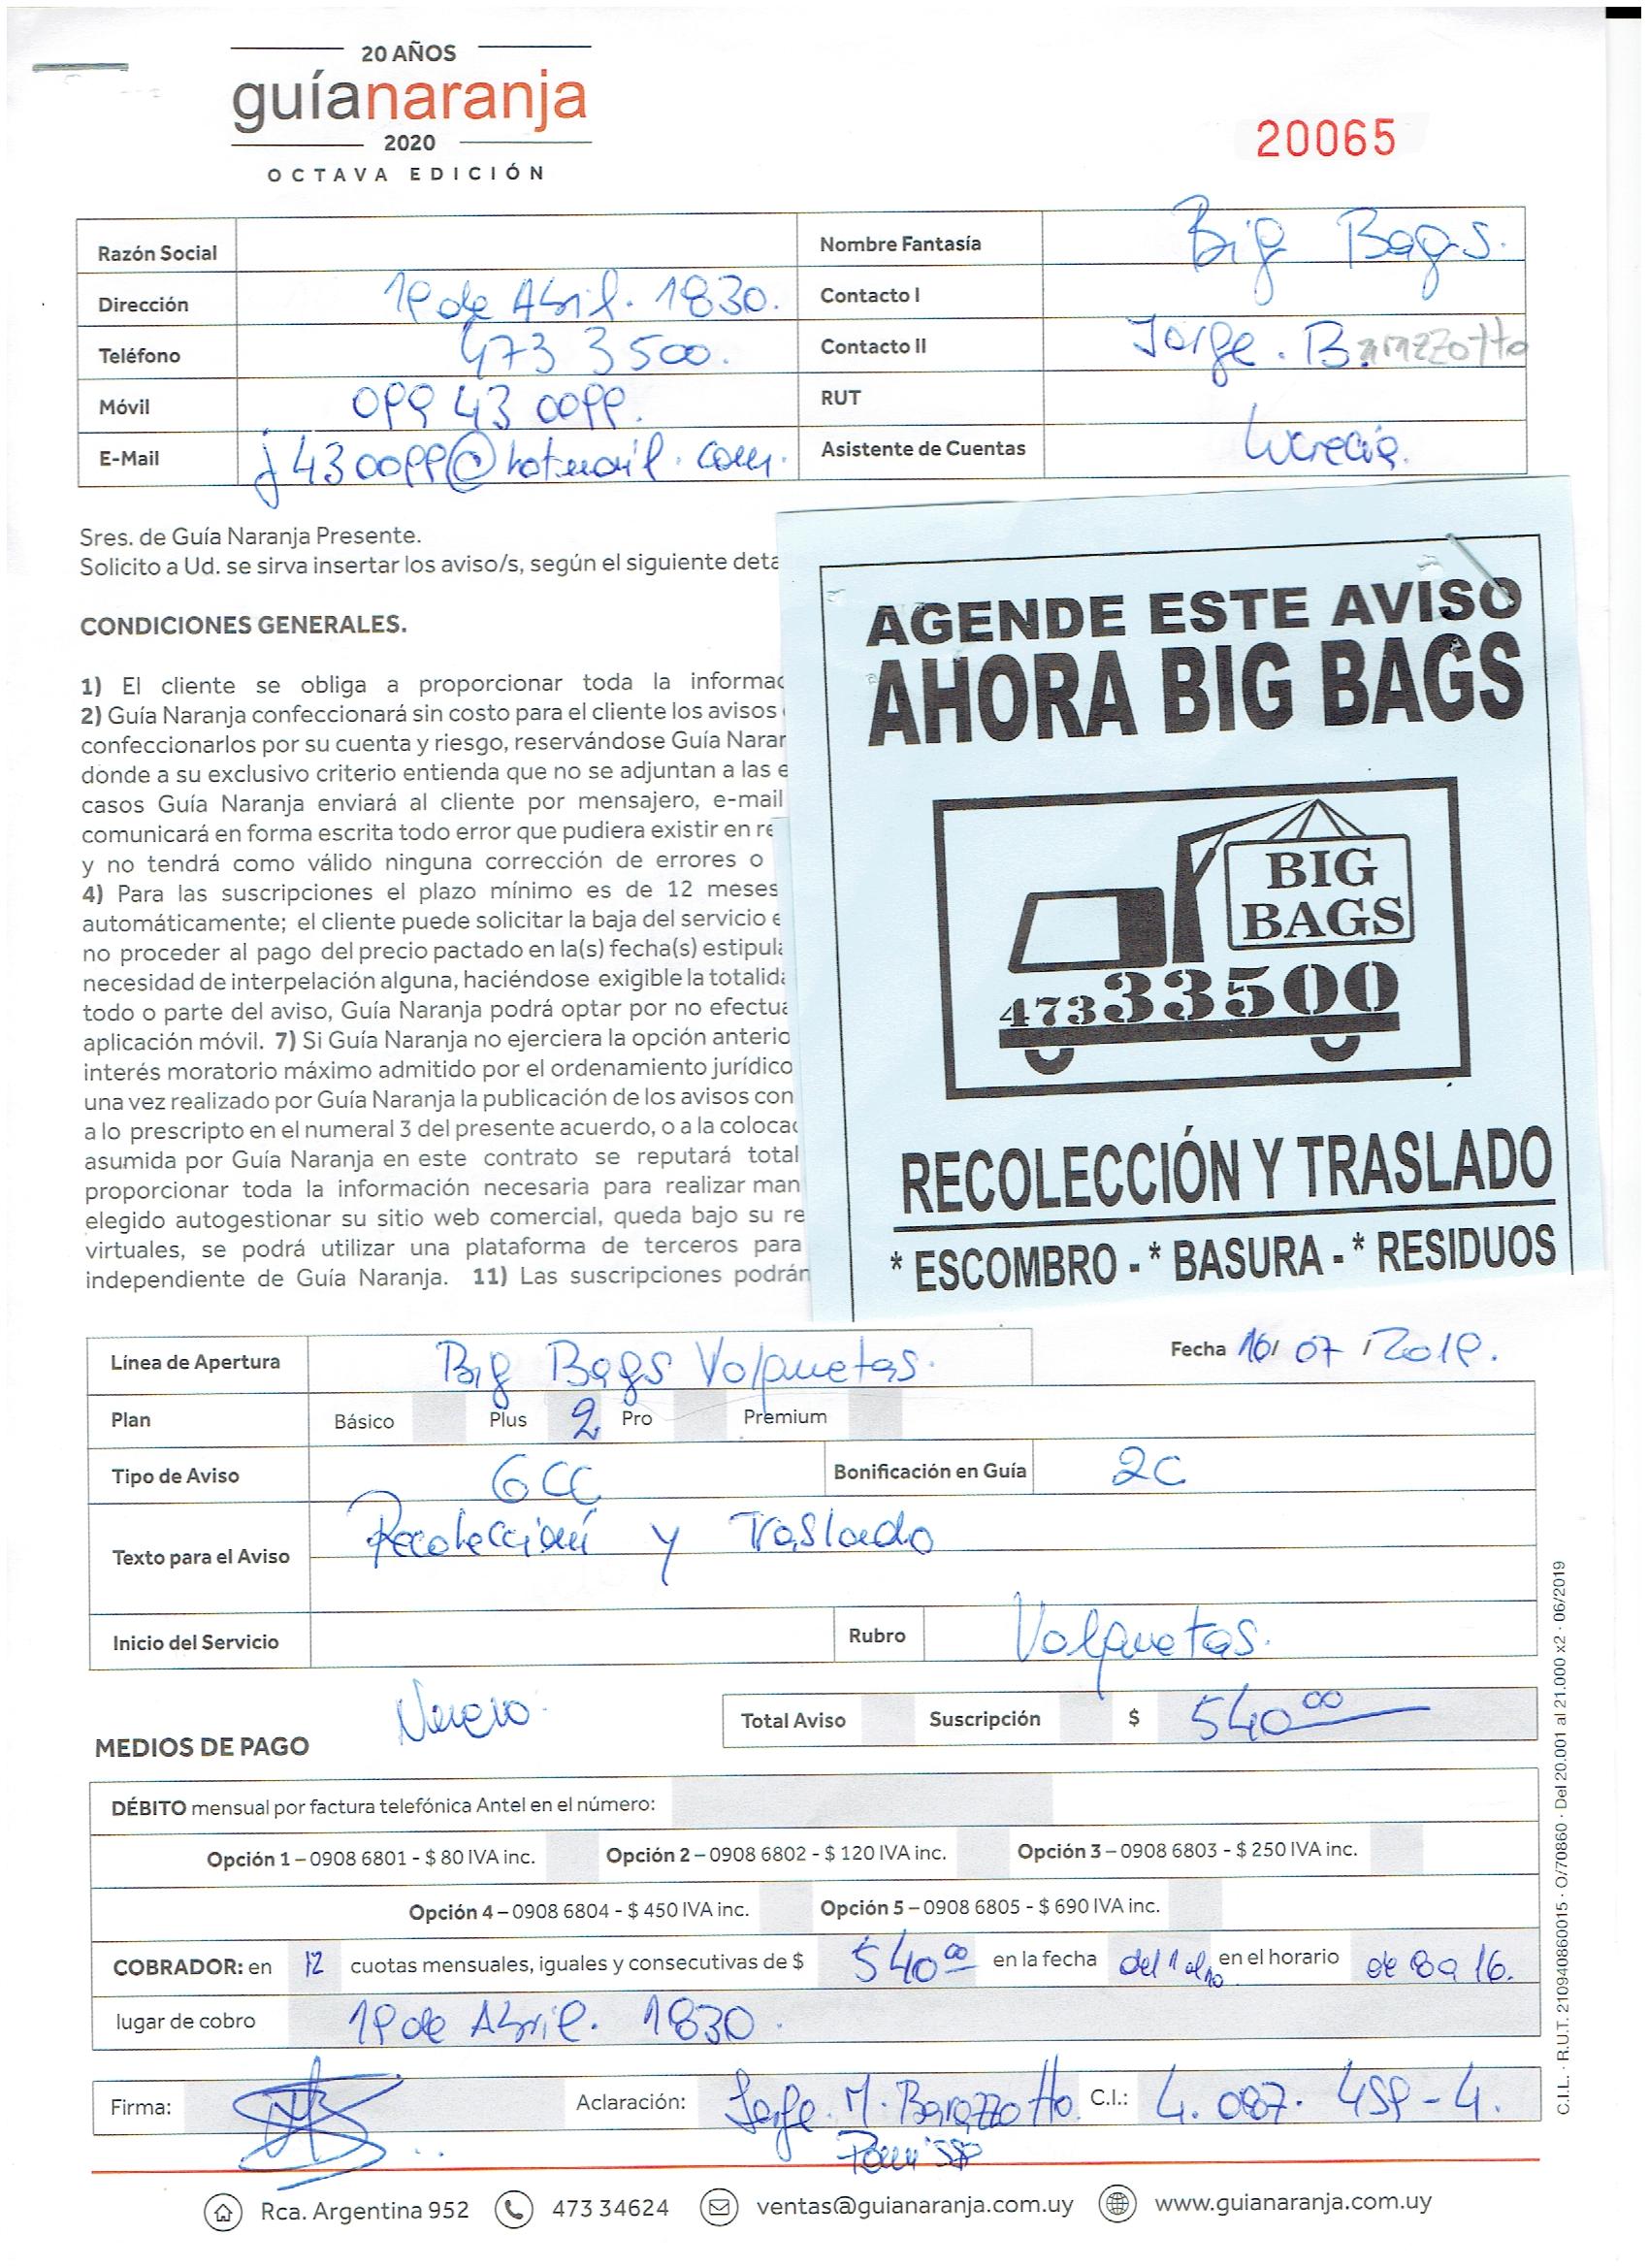 20 AÑOS
guíanaranja
2020
OCTAVA EDICIÓN
20065
Razón Social
Nombre Fantasía Big Bags.
Dirección 19 de Abril. 1830.
Contacto I
Teléfono 473 3500.
Contacto II Jorge. Barazzotto
Móvil 099 43 0099.
RUT
E-Mail j430099@hotmail.com.
Asistente de Cuentas Lucrecia.
Sres. de Guía Naranja Presente.
Solicito a Ud. se sirva insertar los aviso/s, según el siguiente deta
CONDICIONES GENERALES.
1) El cliente se obliga a proporcionar toda la informac
2) Guía Naranja confeccionará sin costo para el cliente los avisos
confeccionarlos por su cuenta y riesgo, reservándose Guía Narar
donde a su exclusivo criterio entienda que no se adjuntan a las e
casos Guía Naranja enviará al cliente por mensajero, e-mail
comunicará en forma escrita todo error que pudiera existir en re
y no tendrá como válido ninguna corrección de errores o
4) Para las suscripciones el plazo mínimo es de 12 meses
automáticamente; el cliente puede solicitar la baja del servicio e
no proceder al pago del precio pactado en la(s) fecha(s) estipula
necesidad de interpelación alguna, haciéndose exigible la totalida
todo o parte del aviso, Guía Naranja podrá optar por no efectua
aplicación móvil. 7) Si Guía Naranja no ejerciera la opción anterio
interés moratorio máximo admitido por el ordenamiento jurídico
una vez realizado por Guía Naranja la publicación de los avisos con
a lo prescripto en el numeral 3 del presente acuerdo, o a la colocac
asumida por Guía Naranja en este contrato se reputará total
proporcionar toda la información necesaria para realizar man
elegido autogestionar su sitio web comercial, queda bajo su re
virtuales, se podrá utilizar una plataforma de terceros para
independiente de Guía Naranja. 11) Las suscripciones podrán
AGENDE ESTE AVISO
AHORA BIG BAGS
BIG
BAGS
47333500
RECOLECCIÓN Y TRASLADO
* ESCOMBRO - * BASURA - * RESIDUOS
Línea de Apertura Big Bags Volquetas.
Fecha 16/ 07 / 2019.
Plan Básico Plus 2 Pro Premium
Tipo de Aviso 6CC Bonificación en Guía 2C
Texto para el Aviso Recolección y Traslado
Inicio del Servicio Rubro Volquetas.
Nuevo.
Total Aviso Suscripción $ 540 00
MEDIOS DE PAGO
DÉBITO mensual por factura telefónica Antel en el número:
Opción 1 – 0908 6801 - $ 80 IVA inc. Opción 2 – 0908 6802 - $ 120 IVA inc. Opción 3 – 0908 6803 - $ 250 IVA inc.
Opción 4 – 0908 6804 - $ 450 IVA inc. Opción 5 – 0908 6805 - $ 690 IVA inc.
COBRADOR: en 12 cuotas mensuales, iguales y consecutivas de $ 540 00 en la fecha del 1 al 10 en el horario de 8 a 16.
lugar de cobro 19 de Abril. 1830.
Firma: Aclaración: Jorge. M. Barazzotto C.I.: 4.087.459-4.
Rca. Argentina 952 473 34624 ventas@guianaranja.com.uy www.guianaranja.com.uy
C.I.L. · R.U.T. 210940860015 · O/70860 · Del 20.001 al 21.000 x2 · 06/2019